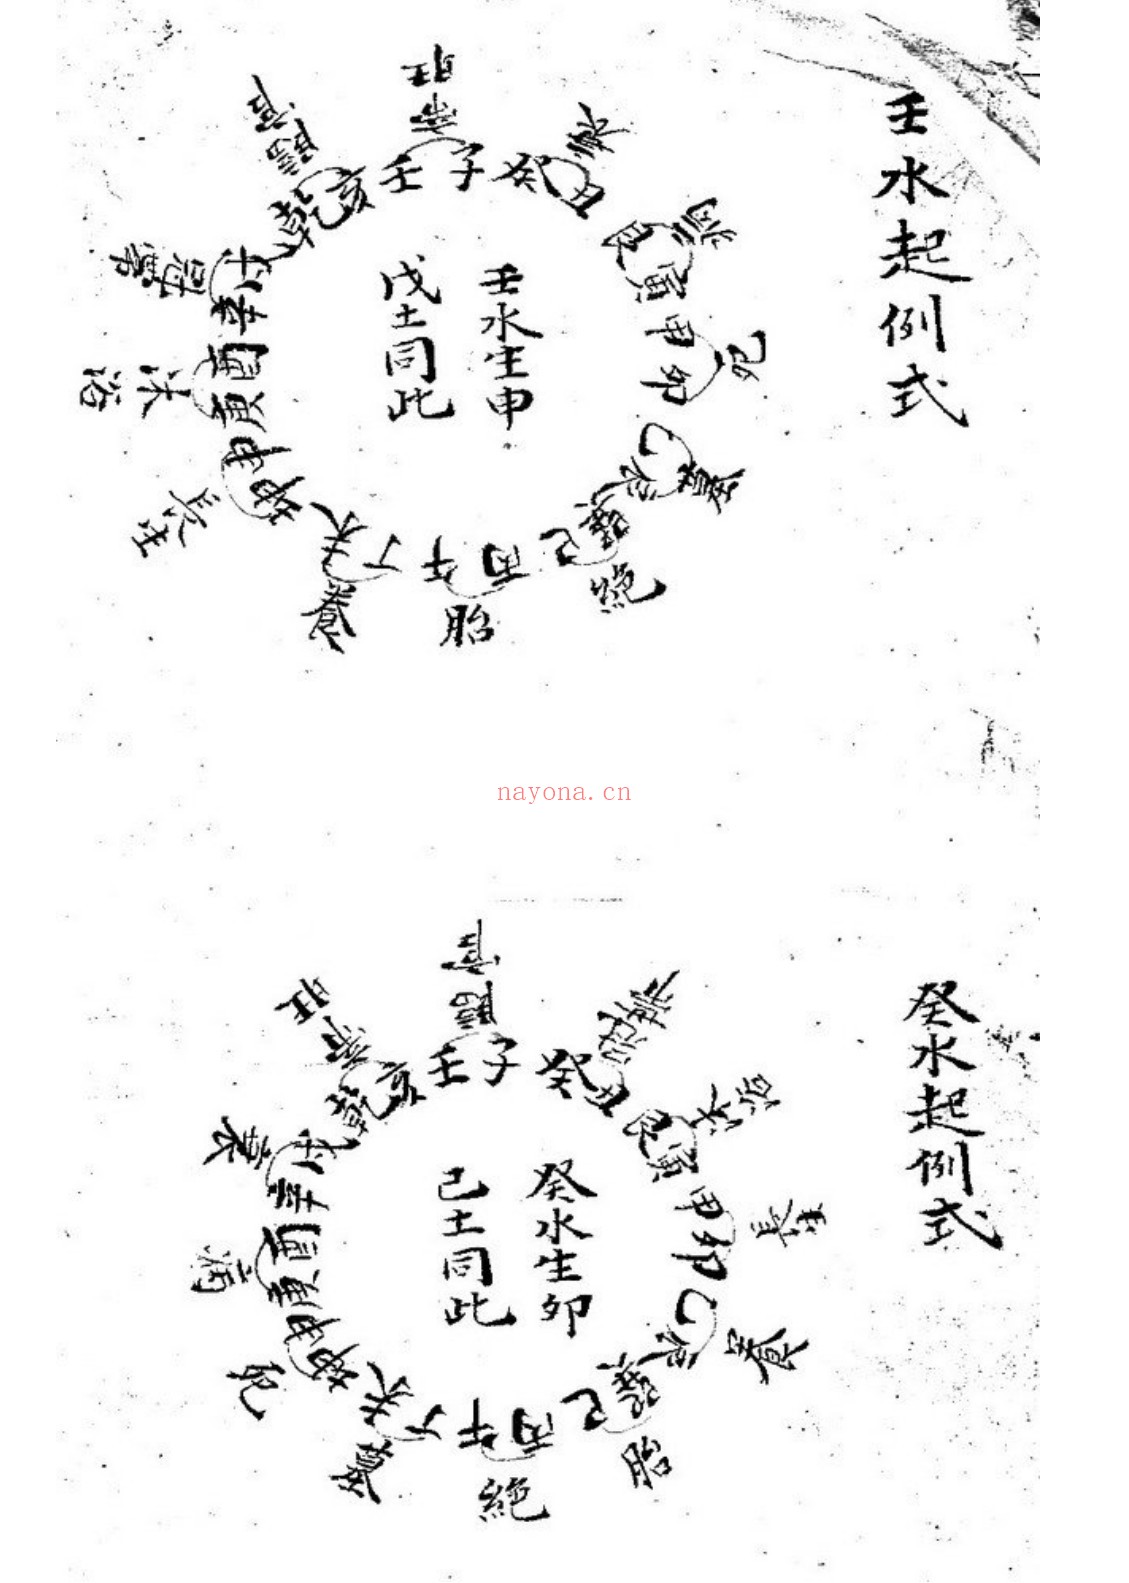 壬水起例式
壬水生申
戊土同此
壬子
癸丑
艮寅
甲卯
乙辰
巽巳
丙午
丁未
坤申
庚酉
辛戌
乾亥
帝旺
衰
病
死
墓
絕
胎
養
長生
沐浴
冠帶
臨官
nayona.cn
癸水起例式
癸水生卯
己土同此
壬子
癸丑
艮寅
甲卯
乙辰
巽巳
丙午
丁未
坤申
庚酉
辛戌
乾亥
臨官
冠帶
沐浴
長生
養
胎
絕
墓
死
病
衰
帝旺